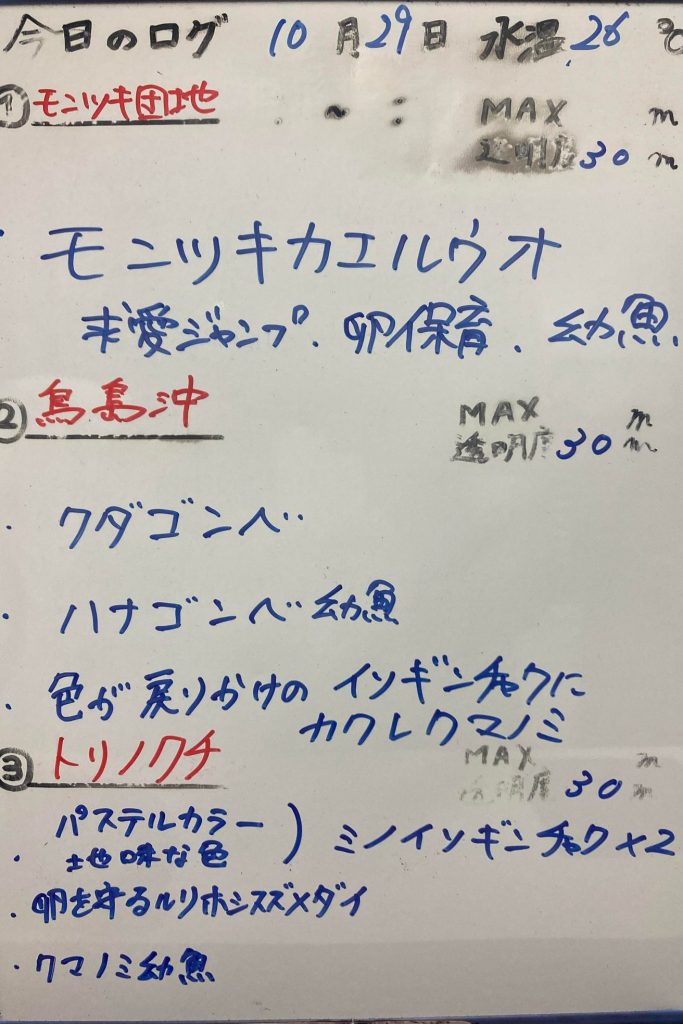 今日のログ 10月29日 水温 26 ℃
① モンツキ団地 MAX m
透明度 30 m
・モンツキカエルウオ
求愛ジャンプ.卵保育.幼魚.
② 鳥島沖 MAX m
透明度 30 m
・クダゴンベ
・ハナゴンベ 幼魚
・色が戻りかけの イソギンチャクに
カクレクマノミ
③ トリノクチ MAX m
透明度 30 m
パステルカラー
・地味な色 ) ミノイソギンチャク×2
・卵を守るルリホシスズメダイ
・クマノミ幼魚